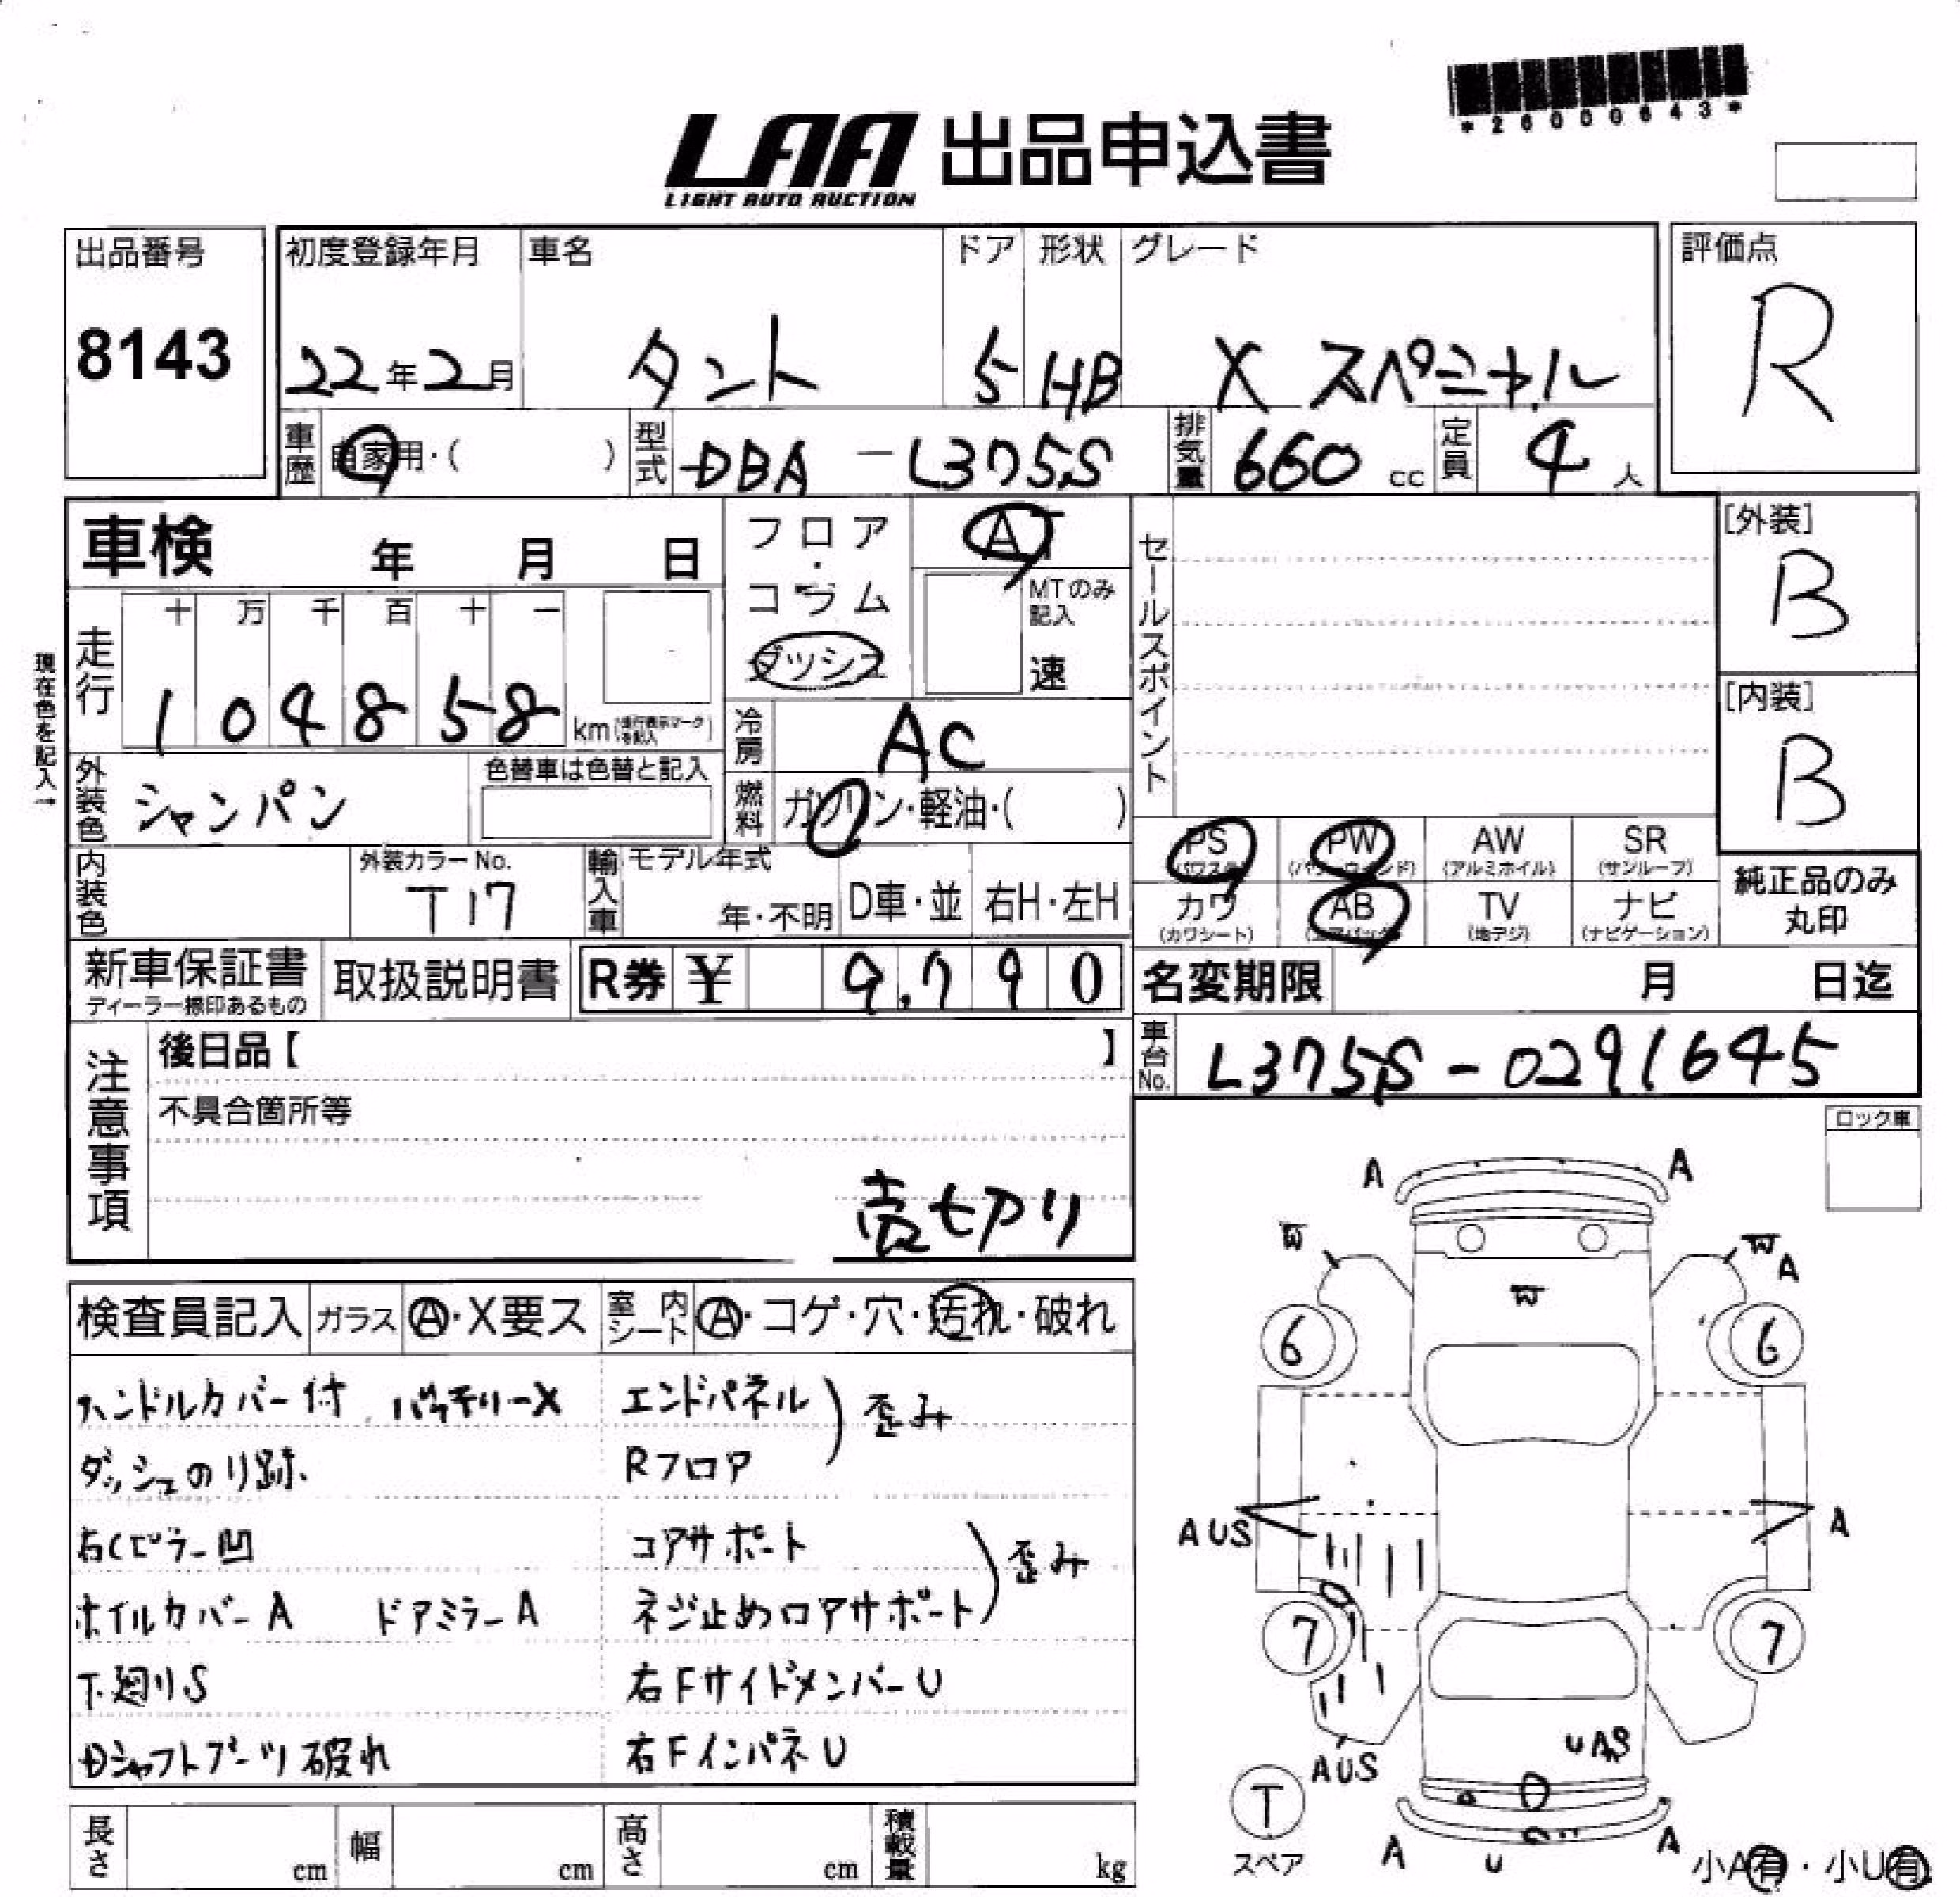 *26000643*
LAA 出品申込書
LIGHT AUTO AUCTION
出品番号
8143
初度登録年月
22年2月
車名
タント
ドア
5
形状
HB
グレード
X スペシャル
評価点
R
車歴 自家用・( )
型式 DBA-L375S
排気量 660 cc
定員 4 人
車検 年 月 日
フロア・コラム
ダッシュ
AT
MTのみ記入
速
セールスポイント
[外装]
B
[内装]
B
現在色を記入→
走行
十 万 千 百 十 一
1 0 4 8 5 8 km(走行表示マークを記入)
冷房 AC
外装色 シャンパン
色替車は色替と記入
燃料 ガソリン・軽油・( )
PS (パワステ)
PW (パワーウィンド)
AW (アルミホイル)
SR (サンルーフ)
カワ (カワシート)
AB (エアバック)
TV (地デジ)
ナビ (ナビゲーション)
純正品のみ
丸印
内装色
外装カラー No.
T17
輸入車
モデル年式
年・不明
D車・並
右H・左H
新車保証書
ディーラー捺印あるもの
取扱説明書
R券 ¥ 9,790
名変期限 月 日迄
車台No. L375S-0291645
注意事項
後日品【 】
不具合箇所等
売切り
ロック車
検査員記入
ガラス Ⓐ・X要ス
室内シート Ⓐ・コゲ・穴・汚れ・破れ
ハンドルカバー付 バッテリーX
ダッシュのり跡
右Cピラー凹
ホイルカバーA ドアミラーA
下廻りS
Dシャフトブーツ破れ
エンドパネル
Rフロア
歪み
コアサポート
ネジ止めロアサポート
歪み
右FサイドメンバーU
右FインパネU
A A
W W A
W
6 6
AUS A
7 7
AUS UAS
T
スペア
A U A
小A有・小U有
長さ cm
幅 cm
高さ cm
積載量 kg